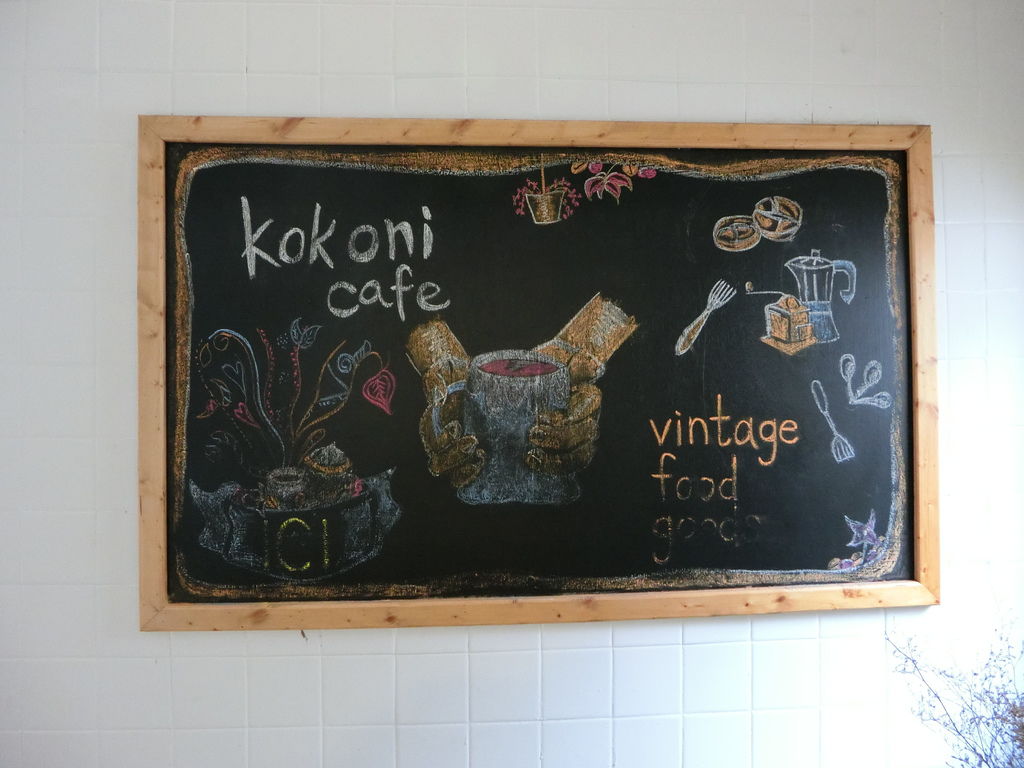 kokoni
cafe
vintage
food
goods
CI